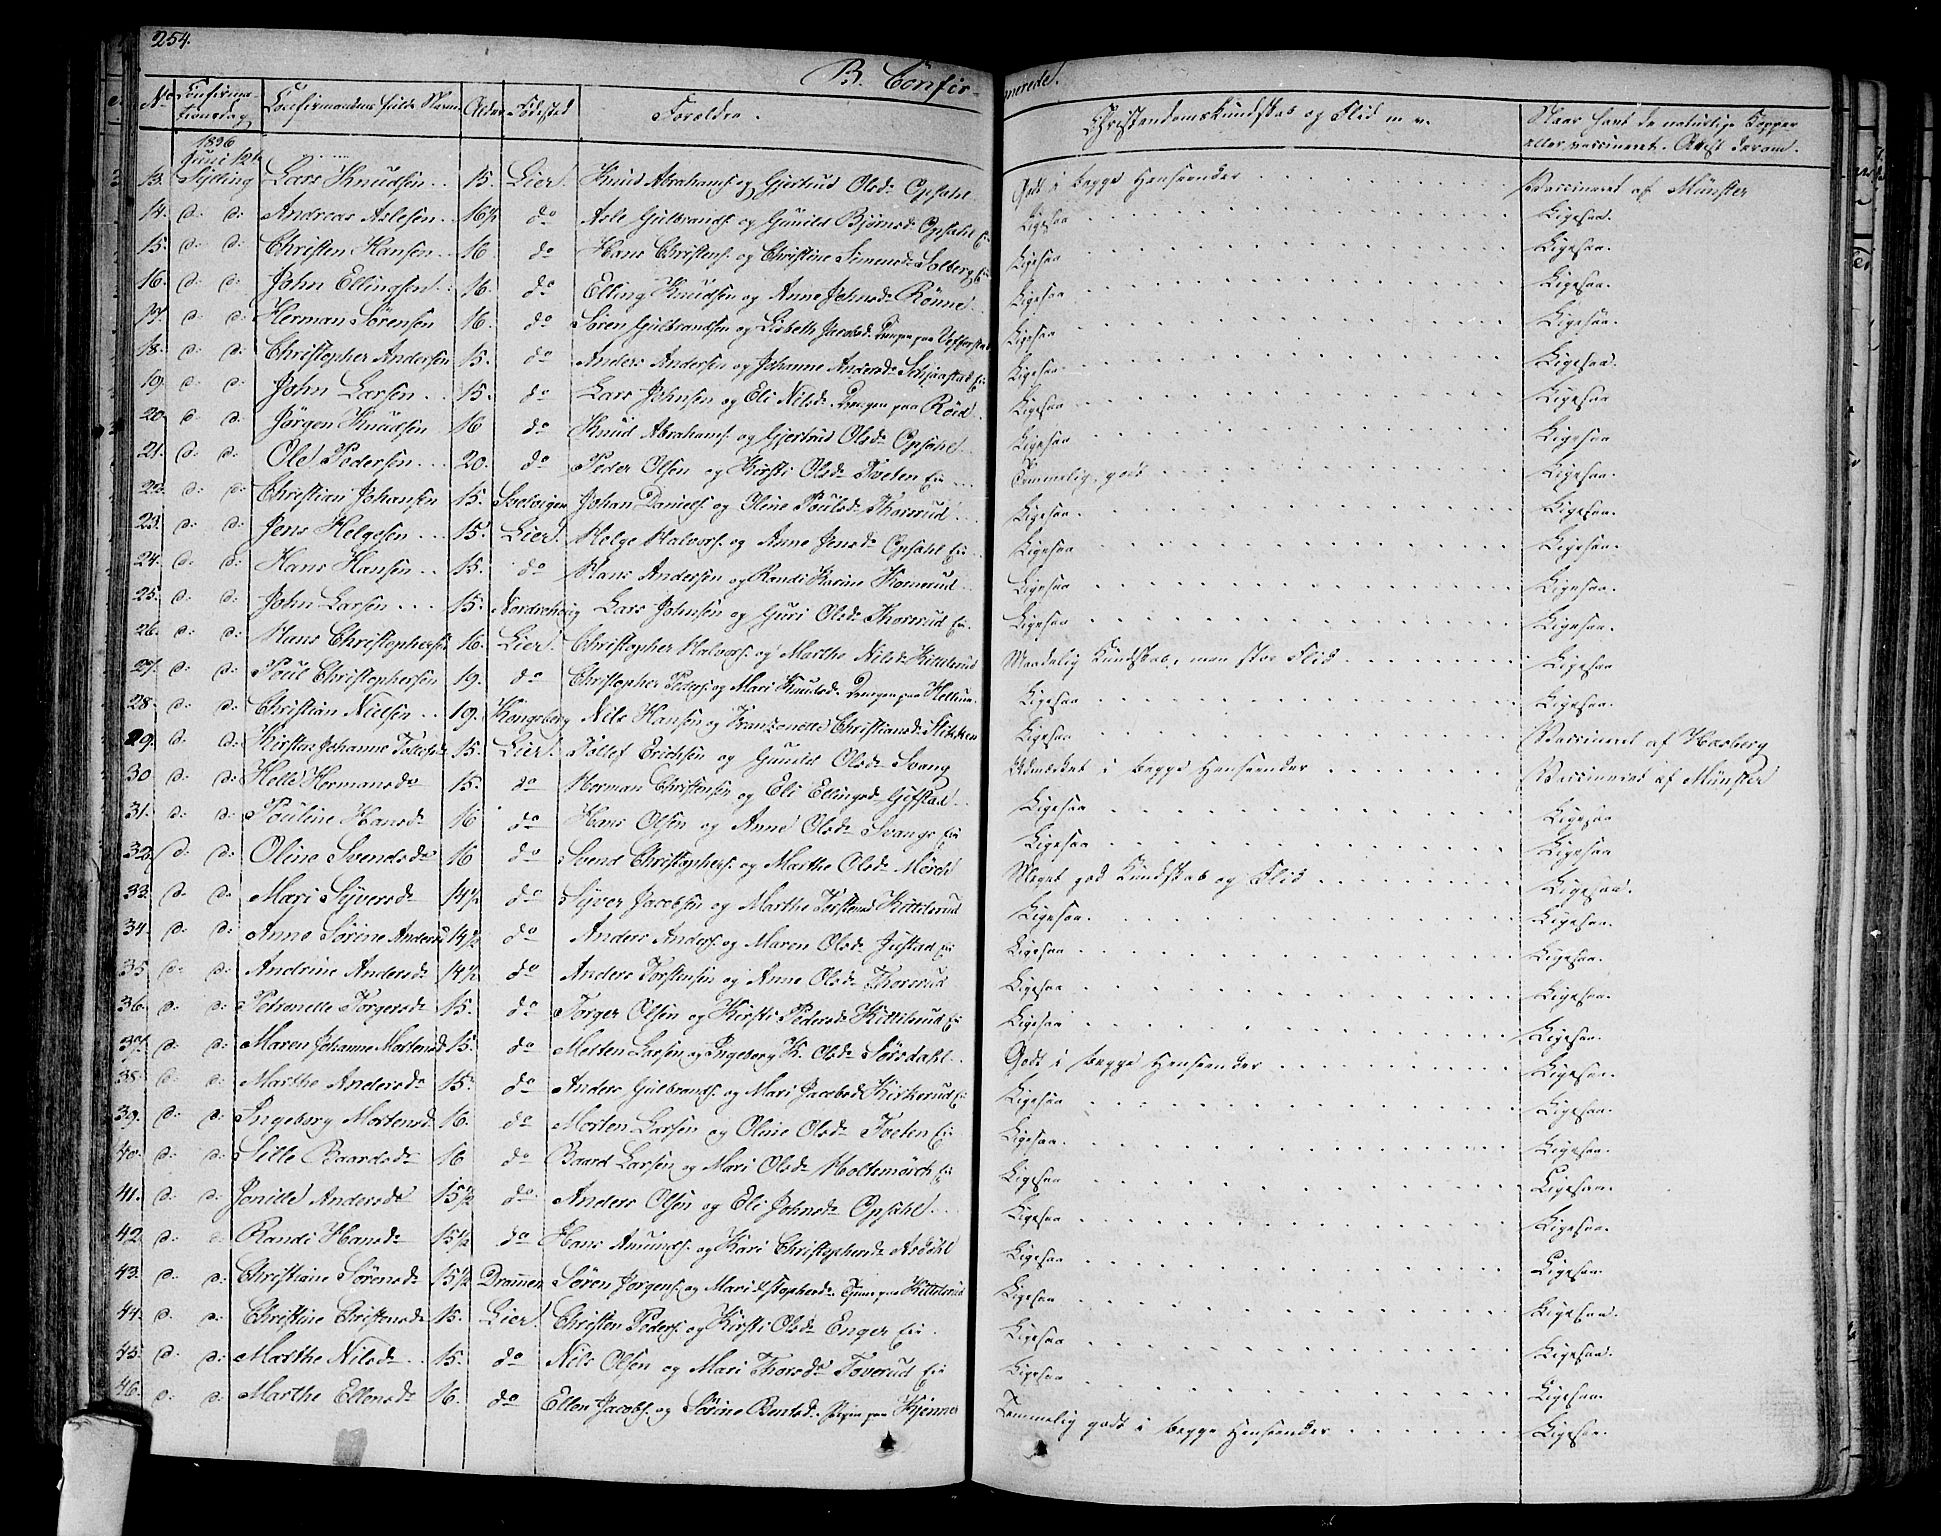 254.
B. Confirmerede.
No Confirmationsdag Confirmandens fulde Navn Alder Födested Forældre. Christendomskundskab og Flid m. v. Naar havt de naturlige Kopper eller vaccineret. Attest derom.
1836
Juni 12te
13. Sylling Lars Knudsen 15. Lier. Knud Abrahams. og Gjertrud Olsdr Opsahl Godt i begge Henseender Vaccineret af Münster
14. d: d: Andreas Aslesen 16½ do Asle Gulbrands. og Gunild Björnsd. Opsahl Ei: Ligesaa Ligesaa.
15. d: d: Christen Hansen 16 do Hans Christens. og Christine Simensdr Solberg Ei: Ligesaa Ligesaa.
16. d: d: John Ellingsen 16. do Elling Knudsen og Anne Johnsdr Rönne Ligesaa Ligesaa.
17. d: d: Herman Sörensen 16. do Sören Gulbrandsen og Lisbeth Jacobsd. Ligesaa Ligesaa.
18. d: d: Christopher Andersen 15. do Anders Andersen og Johanne Andersdr Schjaastad Ei: Ligesaa Ligesaa.
19. d: d: John Larsen 15. do Lars Johnsen og Eli Nilsdr Drengen paa Röid Ligesaa Ligesaa
20. d: d: Jörgen Knudsen 16 do Knud Abrahams. og Gjertrud Olsdr Opsahl Ligesaa Ligesaa
21. d: d: Ole Pedersen 20. do Peder Olsen og Kirsti Olsdr Tveten Ei: Temmelig godt Ligesaa.
22. d: d: Christian Johansen 15. Svelvigen Johan Daniels. og Oline Poulsdr Thorsrud Ligesaa. Ligesaa.
23. d: d: Jens Helgesen 15. Lier. Helge Halvors. og Anne Jensdr Opsahl Ei: Ligesaa Ligesaa.
24. d: d: Hans Hansen 15. do Hans Andersen og Randi Karine Kornerud Ligesaa Ligesaa.
25. d: d: John Larsen 15. Norderhoug Lars Johnsen og Guri Olsdr Thorsrud Ei: Ligesaa Ligesaa.
26. d: d: Hans Christophersen 16. Lier. Christopher Halvors. og Marthe Nilsdr Kittilsrud Maadelig Kundskab, men stor Flid Ligesaa
27. d: d: Poul Christophersen 19. do Christopher Peders. og Mari Knudsdr Drengen paa Hellum Ligesaa Ligesaa.
28. d: d: Christian Nielsen 19. Kongsberg Nils Hansen og Franzenette Christiansdr Ligesaa Vaccineret af Hasberg
29. d: d: Kirsten Johanne Tollefsdr 15. Lier. Tollef Erichsen og Gunild Olsdr Svang Udmærket i begge Henseender Vaccineret af Münster
30 d: d: Helle Hermansdr 15. do Herman Christensen og Eli Ellingsdr Gifstad Ligesaa Ligesaa
31. d: d: Pouline Hansdr 16 do Hans Olsen og Anne Olsdr Svangs Ei: Ligesaa Ligesaa
32. d: d: Oline Svendsdr 16 do Svend Christophers. og Marthe Olsdr Mörch Meget god Kundskab og Flid Ligesaa.
33. d: d: Mari Syversdr 14½ do Syver Jacobsen og Marthe Torstensd. Kittilsrud Ligesaa. Ligesaa.
34. d: d: Anne Sörine Andersd 14½ do Anders Anders. og Maren Olsdr Justad Ei: Ligesaa Ligesaa.
35 d: d: Andrine Andersdr 14½ do Anders Torstensen og Anne Olsdr Thorsrud Ligesaa Ligesaa.
36. d: d: Petronelle Torgersdr 15. do Torger Olsen og Kirsti Pedersdr Kittilsrud Ei: Ligesaa Ligesaa.
37. d: d: Maren Johanne Mortensd 15. do Morten Larsen og Ingeborg K. Olsdr Sörsdahl Godt i begge Henseender Ligesaa.
38. d: d: Marthe Andersdr 15. do Anders Gulbrands. og Mari Jacobsd. Kirkerud Ei: Ligesaa Ligesaa.
39. d: d: Ingeborg Mortensd 16. do Morten Larsen og Oline Olsdr Tveten Ei: Ligesaa. Ligesaa.
40. d: d: Sille Baardsdr 16 do Baard Larsen og Mari Olsdr Holtsmörch Ei: Ligesaa Ligesaa.
41. d: d: Jonille Andersdr 15½ do Anders Olsen og Eli Johnsdr Opsahl Ligesaa Ligesaa.
42 d: d: Randi Hansdr 15½ do Hans Amunds. og Kari Christophersdr Ligesaa Ligesaa.
43. d: d: Christiane Sörensdr 15½ Drammen Sören Jörgens. og Mari Kittilsrud Ligesaa Ligesaa.
44. d: d: Christine Christensdr 15. Lier. Christen Peders. og Kirsti Olsdr Enger Ei: Ligesaa Ligesaa.
45. d: d: Marthe Nilsdr 15. do Nils Olsen og Mari Thorsdr Toverud Ei: Ligesaa Ligesaa.
46. d: d: Marthe Ellensdr 16. do Ellen Jacobs. og Sörine Bentsdr Pigen paa Kjenner Temmelig godt i begge Henseender Ligesaa.